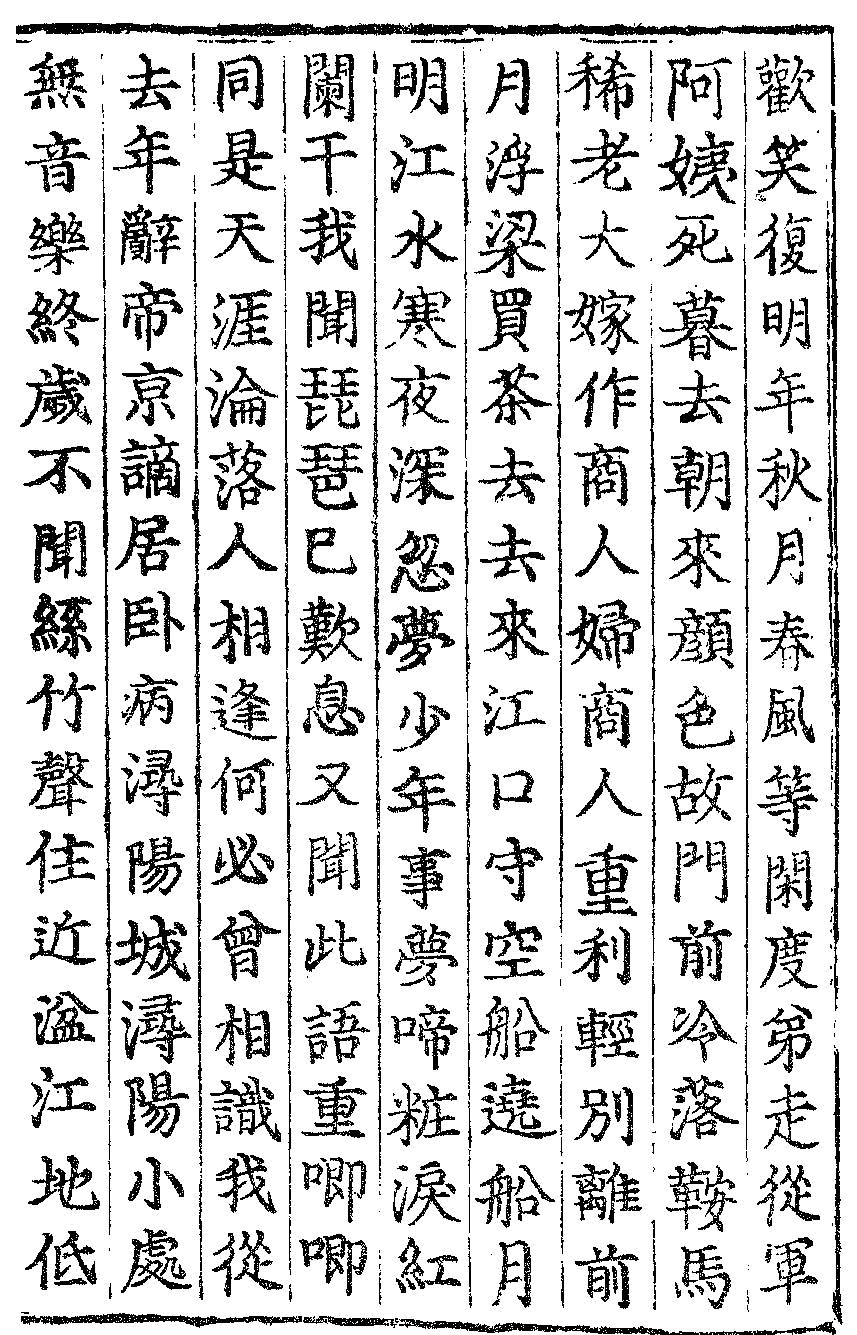 歡笑復明年秋月春風等閑度弟走從軍
阿姨死暮去朝來顔色故門前冷落鞍馬
稀老大嫁作商人婦商人重利輕別離前
月浮梁買茶去去來江口守空船遶船月
明江水寒夜深忽夢少年事夢啼粧淚紅
闌干我聞琵琶已歎息又聞此語重唧唧
同是天涯淪落人相逢何必曾相識我從
去年辭帝京謫居卧病潯陽城潯陽小處
無音樂終歲不聞絲竹聲住近湓江地低